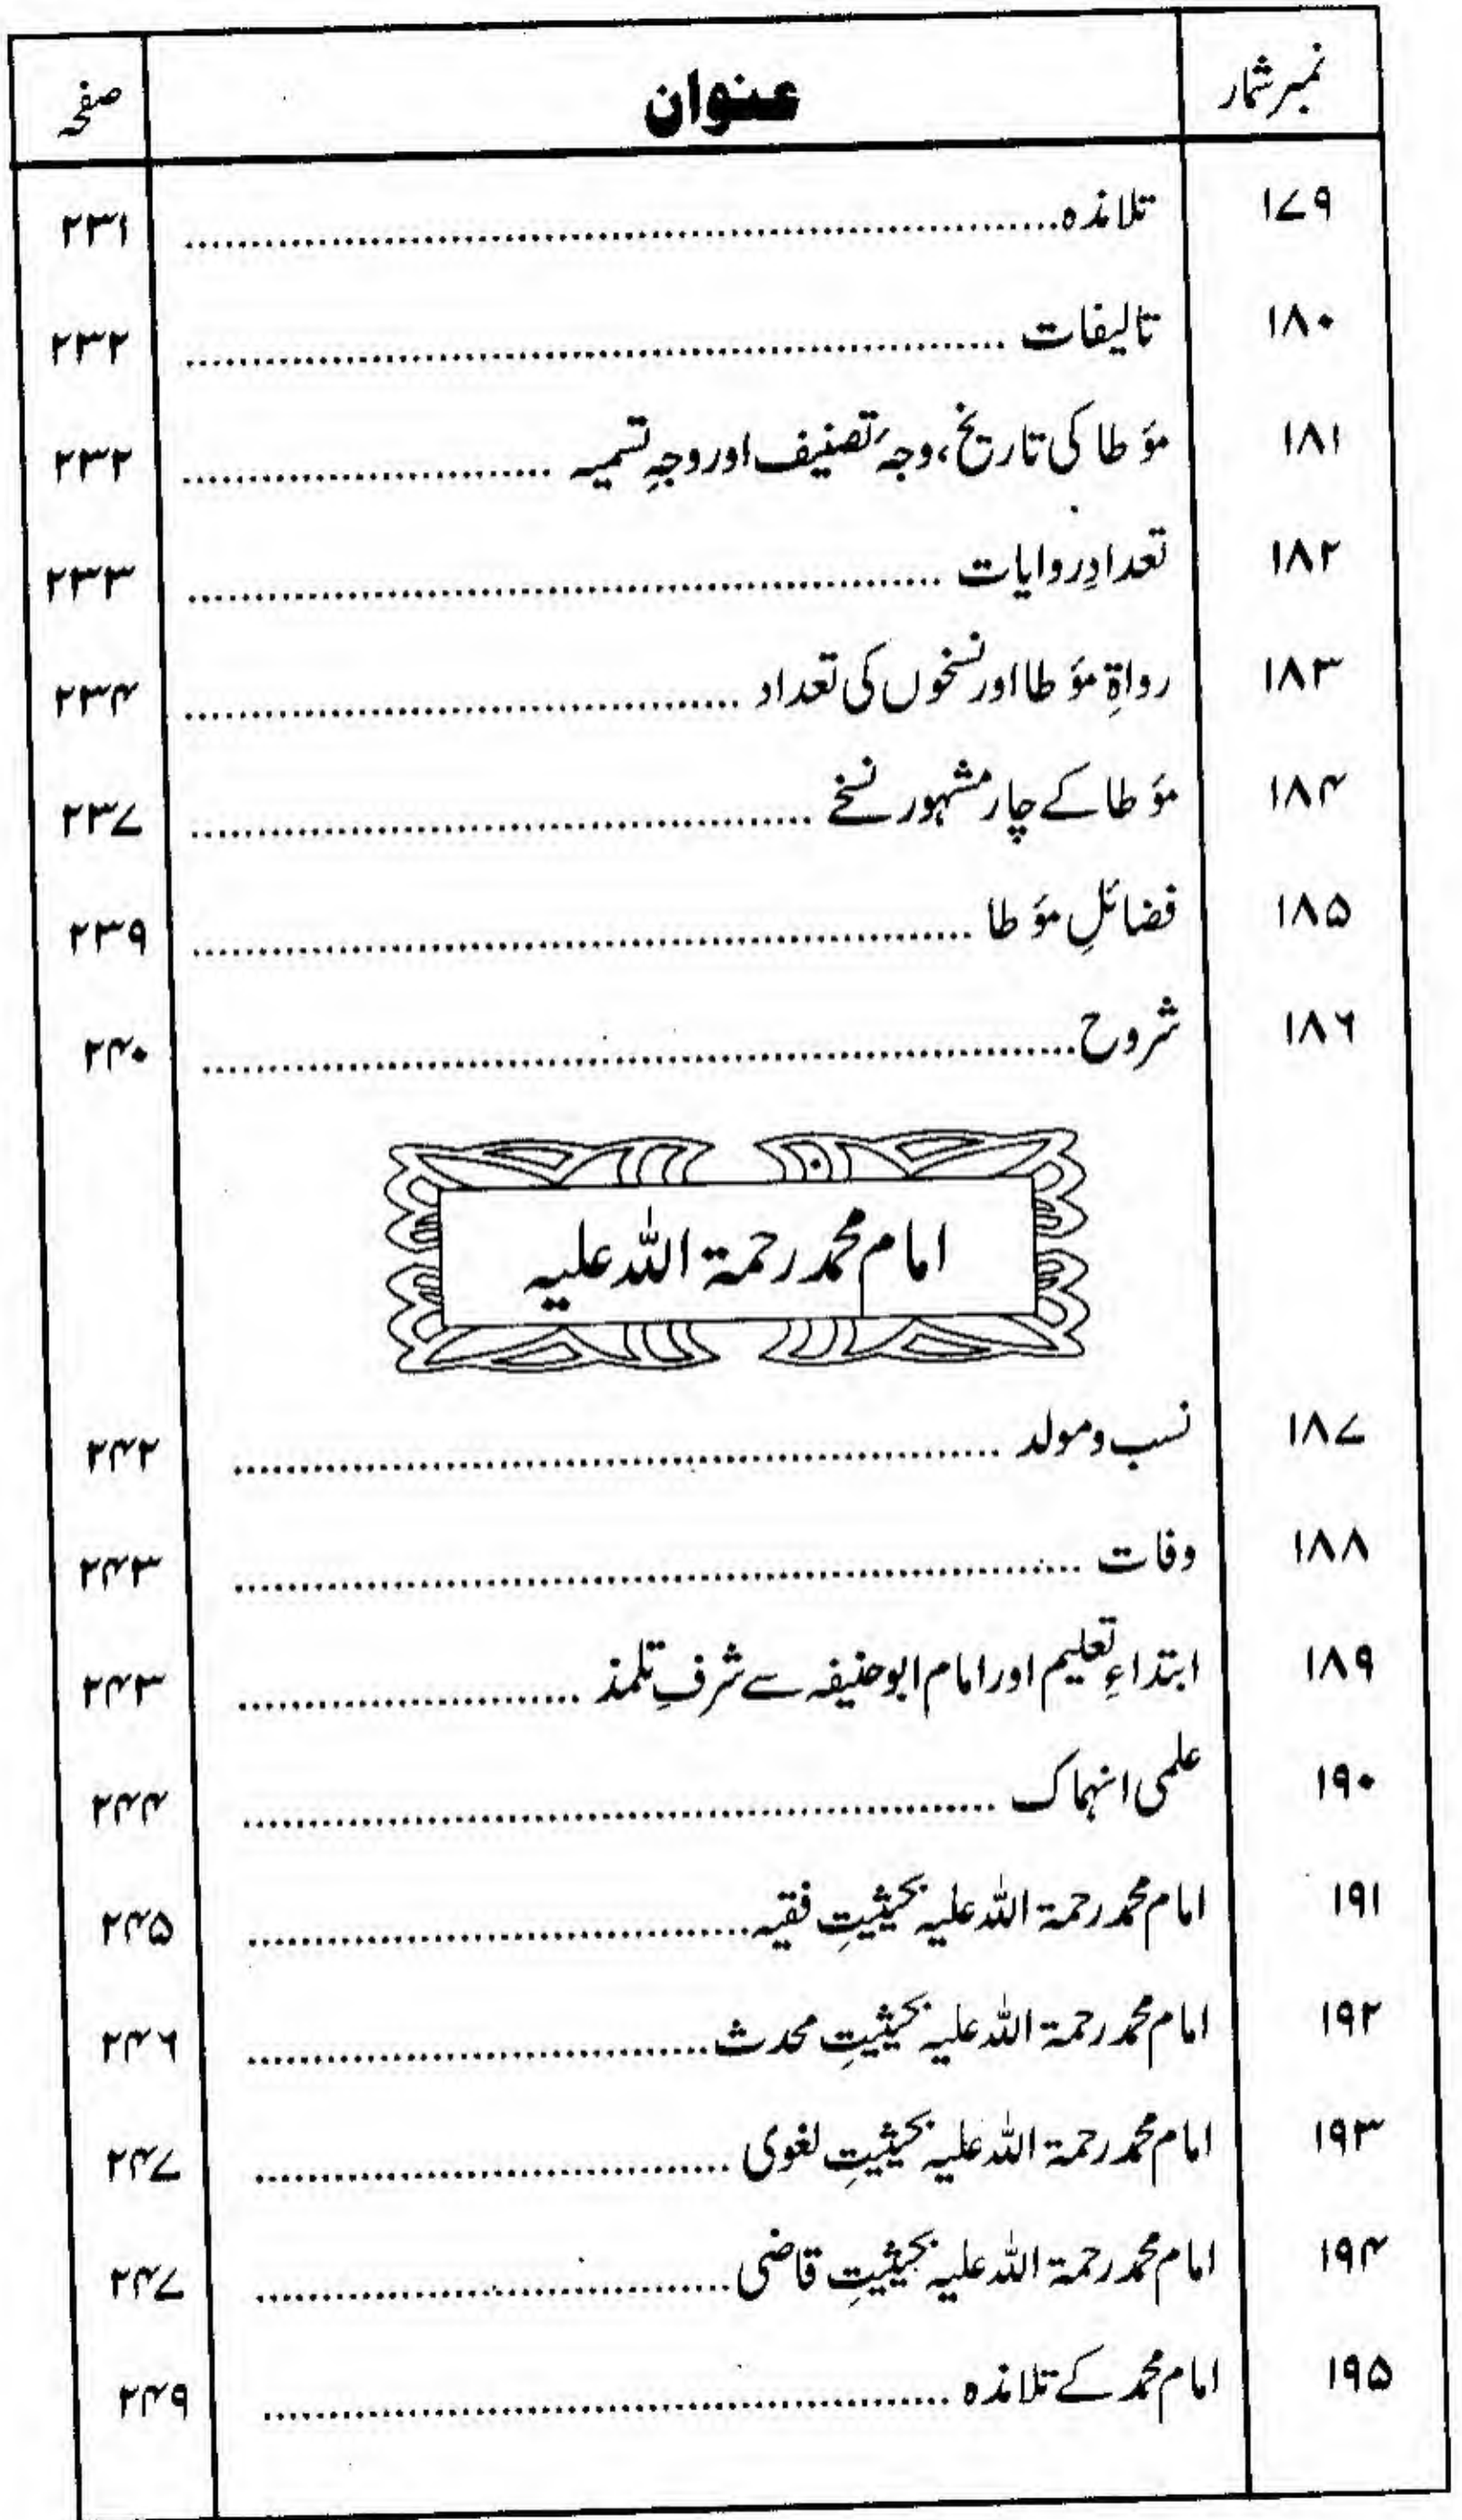 نمبر شمار عنوان صفحہ
۱۷۹ تلامذہ ۲۳۱
۱۸۰ تالیفات ۲۳۲
۱۸۱ مؤطا کی تاریخ، وجہِ تصنیف اور وجہِ تسمیہ ۲۳۲
۱۸۲ تعدادِ روایات ۲۳۳
۱۸۳ رواۃِ مؤطا اور نسخوں کی تعداد ۲۳۴
۱۸۴ مؤطا کے چار مشہور نسخے ۲۳۷
۱۸۵ فضائلِ مؤطا ۲۳۹
۱۸۶ شروح ۲۴۰
امام محمد رحمۃ اللہ علیہ
۱۸۷ نسب و مولد ۲۴۲
۱۸۸ وفات ۲۴۳
۱۸۹ ابتداءِ تعلیم اور امام ابوحنیفہ سے شرفِ تلمذ ۲۴۳
۱۹۰ علمی انہماک ۲۴۴
۱۹۱ امام محمد رحمۃ اللہ علیہ بحیثیتِ فقیہ ۲۴۵
۱۹۲ امام محمد رحمۃ اللہ علیہ بحیثیتِ محدث ۲۴۶
۱۹۳ امام محمد رحمۃ اللہ علیہ بحیثیتِ لغوی ۲۴۷
۱۹۴ امام محمد رحمۃ اللہ علیہ بحیثیتِ قاضی ۲۴۷
۱۹۵ امام محمد کے تلامذہ ۲۴۹